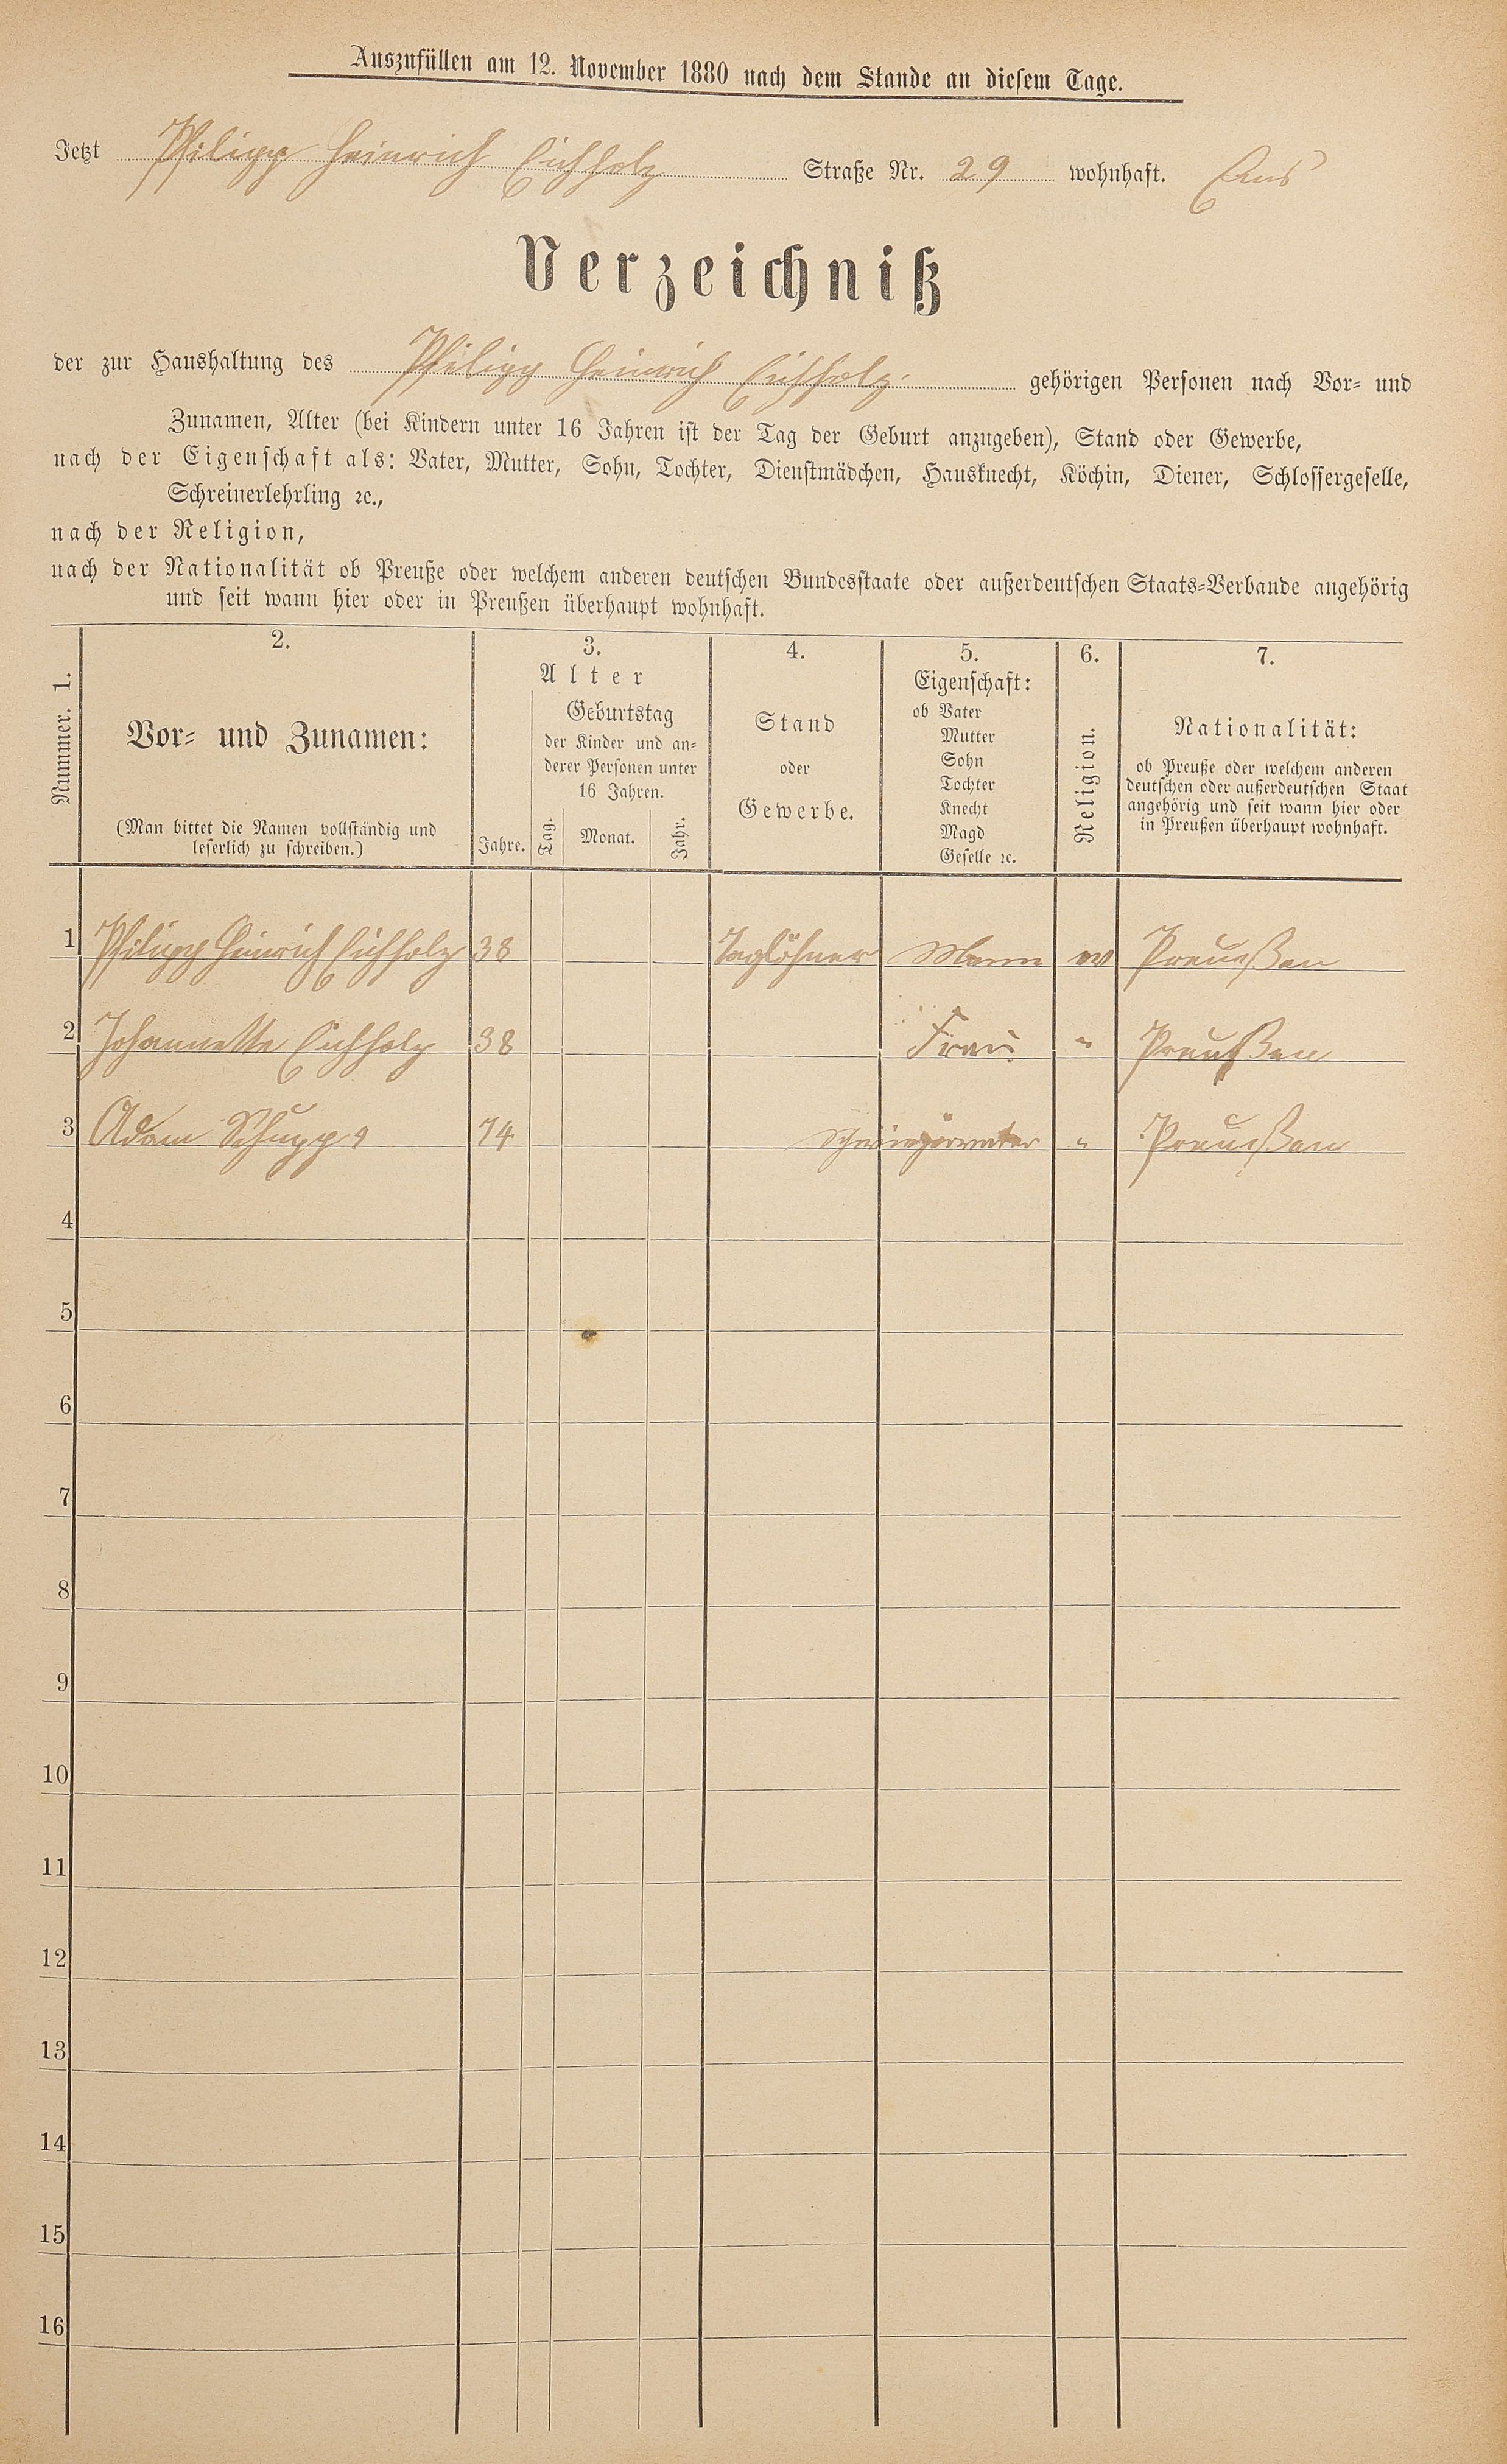 Auszufüllen am 12. November 1880 nach dem Stande an diesem Tage.
Jetzt Philipp Heinrich Eichholz Straße Nr. 29 wohnhaft. Ems
Verzeichniß
der zur Haushaltung des Philipp Heinrich Eichholz. gehörigen Personen nach Vor- und
Zunamen, Alter (bei Kindern unter 16 Jahren ist der Tag der Geburt anzugeben), Stand oder Gewerbe,
nach der Eigenschaft als: Vater, Mutter, Sohn, Tochter, Dienstmädchen, Hausknecht, Köchin, Diener, Schlossergeselle,
Schreinerlehrling ꝛc.,
nach der Religion,
nach der Nationalität ob Preuße oder welchem anderen deutschen Bundesstaate oder außerdeutschen Staats-Verbande angehörig
und seit wann hier oder in Preußen überhaupt wohnhaft.
Nummer. 1.
2.
Vor- und Zunamen:
(Man bittet die Namen vollständig und
leserlich zu schreiben.)
3.
Alter
Jahre.
Geburtstag
der Kinder und an-
derer Personen unter
16 Jahren.
Tag. Monat. Jahr.
4.
Stand
oder
Gewerbe.
5.
Eigenschaft:
ob Vater
Mutter
Sohn
Tochter
Knecht
Magd
Geselle ꝛc.
6.
Religion.
7.
Nationalität:
ob Preuße oder welchem anderen
deutschen oder außerdeutschen Staat
angehörig und seit wann hier oder
in Preußen überhaupt wohnhaft.
1 Philipp Heinrich Eichholz 38 Taglöhner Mann ev Preußen
2 Johannette Eichholz 38 Frau " Preußen
3 Adam Schupp 74 Schwiegervater " Preußen
4
5
6
7
8
9
10
11
12
13
14
15
16